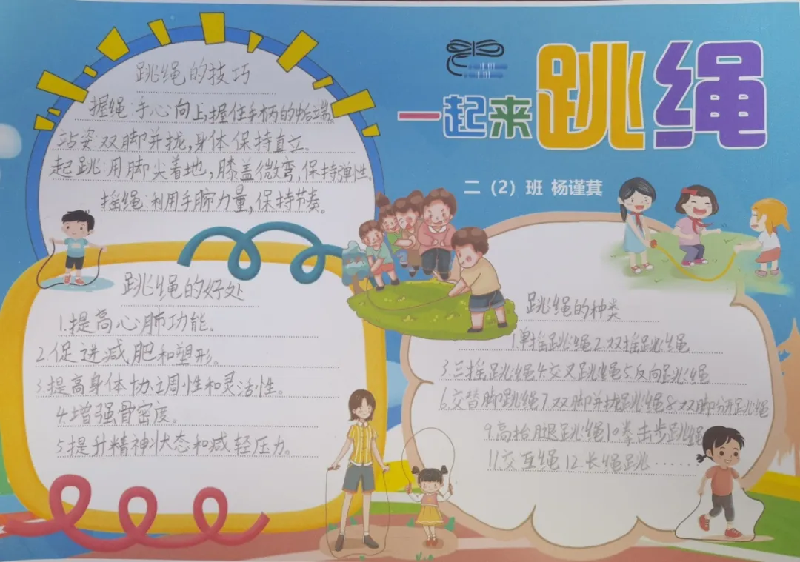 一起来跳绳
二（2）班 杨谨萁
跳绳的技巧
握绳 手心向上握住手柄的中后端
站姿 双脚并拢,身体保持直立。
起跳 用脚尖着地,膝盖微弯,保持弹性
摇绳 利用手腕力量,保持节奏。
跳绳的好处
1.提高心肺功能。
2.促进减肥和塑形。
3.提高身体协调性和灵活性。
4.增强骨密度。
5.提升精神状态和减轻压力。
跳绳的种类
1.单摇跳绳2.双摇跳绳
3.三摇跳绳4.交叉跳绳5.反向跳绳
6.交替脚跳绳7.双脚并拢跳绳8.双脚分开跳绳
9.高抬腿跳绳10拳击步跳绳
11.交互绳12.长绳跳……